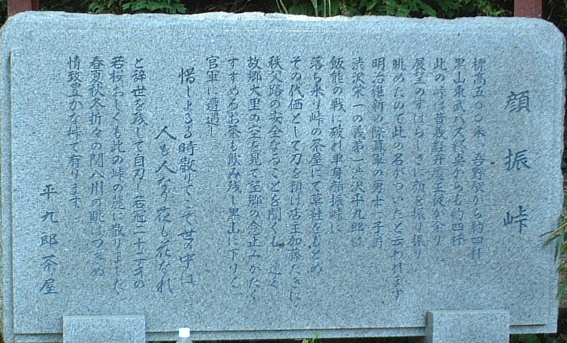 顔振峠
標高五〇〇米、吾野駅から約四粁
黒山東武バス終点からも約四粁
此の峠は昔義経弁慶主従が余り
展望のすばらしさに顔を振り振り
眺めたので此の名がついたと云われます
明治維新の際幕軍の勇士一子育
渋沢栄一の義弟渋沢平九郎は
飯能の戦に破れ単身顔振峠に
落ち来り峠の茶屋にて草鞋をもとめ
その代価として刀を預け店主加藤たきに
秩父路の安全なることを聞くも 遠く
故郷大里の空を見て望郷の念止みがたく
すすめるお茶も飲み残し黒山に下りて
官軍に遭遇し
惜しまるる時散りてこそ世の中は
人も人なり花も花なれ
と辞世を残して自刃し若冠二十二才の
若桜おしくも此の峠の麓に散りました
春夏秋冬折々の関八州の眺めつきぬ
情致豊かな峠で有ります
平九郎茶屋